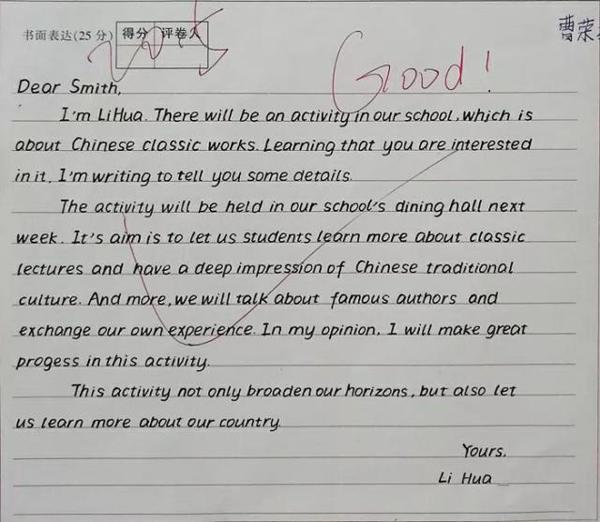 曹荣
书面表达(25分) 得分 评卷人
Good!
Dear Smith,
I'm LiHua. There will be an activity in our school, which is
about Chinese classic works. Learning that you are interested
in it, I'm writing to tell you some details.
The activity will be held in our school's dining hall next
week. It's aim is to let us students learn more about classic
lectures and have a deep impression of Chinese traditional
culture. And more, we will talk about famous authors and
exchange our own experience. In my opinion, I will make great
progess in this activity.
This activity not only broaden our horizons, but also let
us learn more about our country.
Yours,
Li Hua